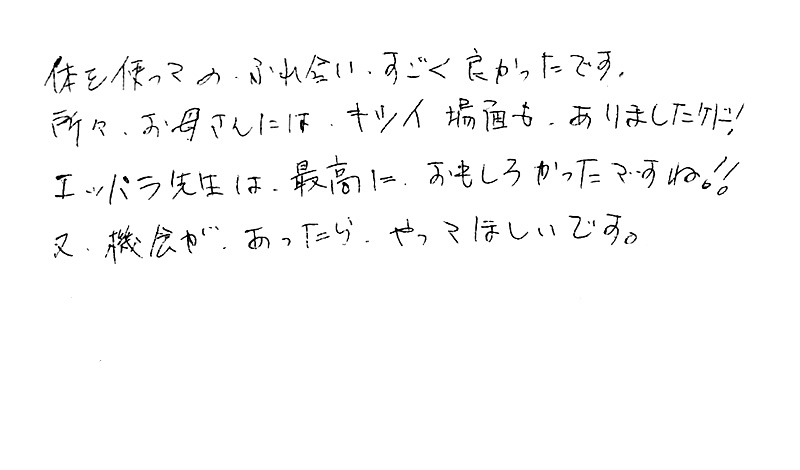 体を使っての、ふれ合い、すごく良かったです。
所々、お母さんには、キツイ場面も、ありましたケド!
エッバラ先生は、最高に、おもしろかったですね。!!
又、機会が、あったら、やってほしいです。